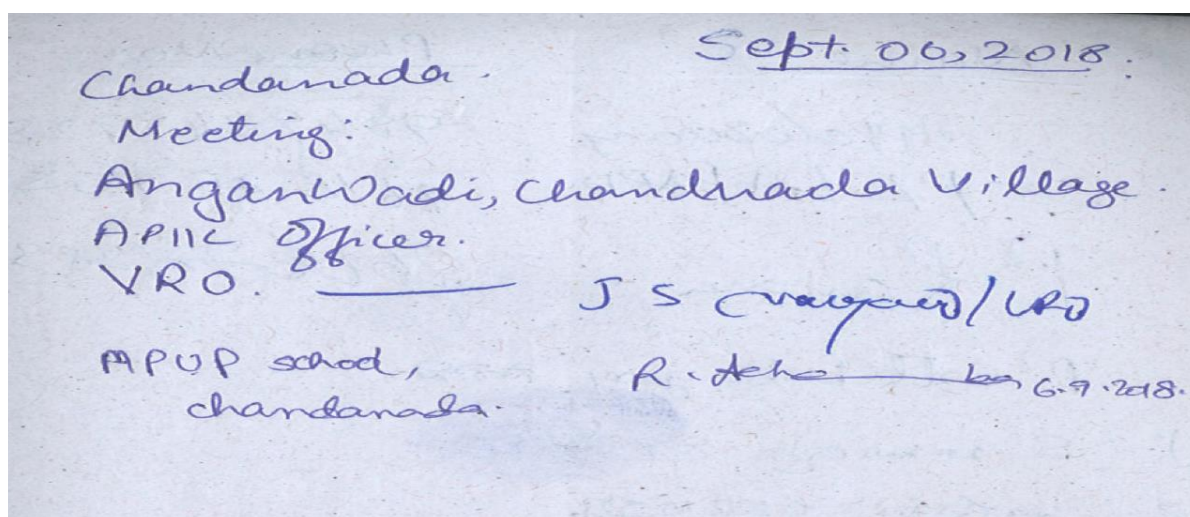 Sept. 06, 2018.
Chandanada.
Meeting:
AnganWadi, Chandnada Village.
APIIC Officer.
VRO. J S /VRO
MPUP school, R.
chandanada. 6.9.2018.